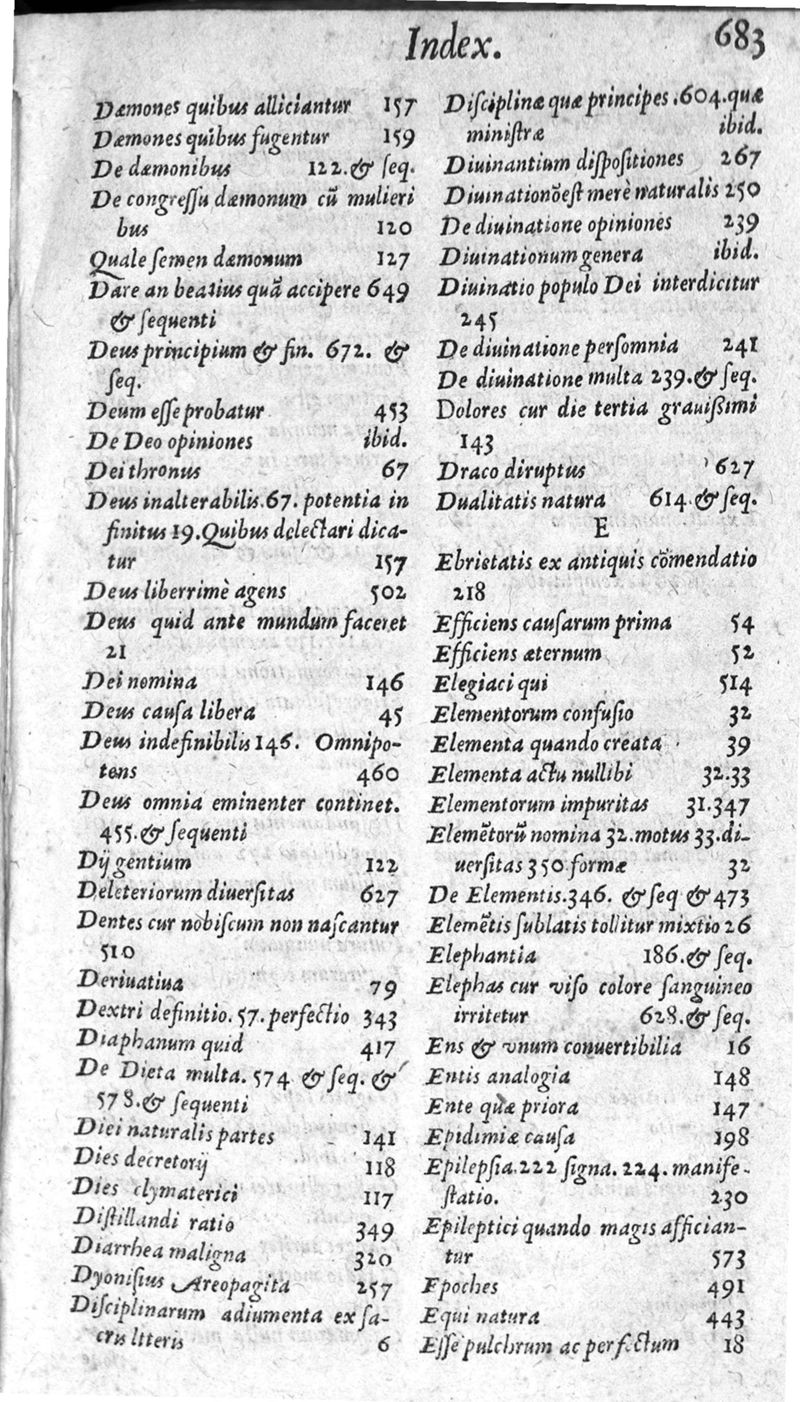 Index. 683
Dæmones quibus alliciantur 157
Dæmones quibus fugentur 159
De dæmonibus 122. & ſeq.
De congreſſu dæmonum cũ mulieri
bus 120
Quale ſemen dæmonum 127
Dare an beatius quã accipere 649
& ſequenti
Deus principium & fin. 672. &
ſeq.
Deum eſſe probatur 453
De Deo opiniones ibid.
Dei thronus 67
Deus inalterabilis.67. potentia in
finitus 19. Quibus delectari dica-
tur 157
Deus liberrimè agens 502
Deus quid ante mundum faceret
21
Dei nomina 146
Deus cauſa libera 45
Deus indefinibilis 146. Omnipo-
tens 460
Deus omnia eminenter continet.
455. & ſequenti
Dij gentium 122
Deleteriorum diuerſitas 627
Dentes cur nobiſcum non naſcantur
510
Deriuatiua 79
Dextri definitio. 57. perfectio 343
Diaphanum quid 417
De Dieta multa. 574 & ſeq. &
578. & ſequenti
Diei naturalis partes 141
Dies decretorij 118
Dies clymaterici 117
Diſtillandi ratio 349
Diarrhea maligna 320
Dyoniſius Areopagita 257
Diſciplinarum adiumenta ex ſa-
cris ltteris 6
Diſciplinæ quæ principes .604. quæ
miniſtræ ibid.
Diuinantium diſpoſitiones 267
Diuinatio nõ eſt merè naturalis 250
De diuinatione opiniones 239
Diuinationum genera ibid.
Diuinatio populo Dei interdicitur
245
De diuinatione per ſomnia 241
De diuinatione multa 239. & ſeq.
Dolores cur die tertia grauißimi
143
Draco diruptus 627
Dualitatis natura 614. & ſeq.
E
Ebrietatis ex antiquis cõmendatio
218
Efficiens cauſarum prima 54
Efficiens æternum 52
Elegiaci qui 514
Elementorum confuſio 32
Elementa quando creata 39
Elementa actu nullibi 32.33
Elementorum impuritas 31.347
Elemẽtorũ nomina 32. motus 33. di-
uerſitas 350 formæ 32
De Elementis.346. & ſeq & 473
Elemẽtis ſublatis tollitur mixtio 26
Elephantia 186. & ſeq.
Elephas cur viſo colore ſanguineo
irritetur 628. & ſeq.
Ens & vnum conuertibilia 16
Entis analogia 148
Ente quæ priora 147
Epidimiæ cauſa 198
Epilepſia.222 ſigna. 224. manife-
ſtatio. 230
Epileptici quando magis affician-
tur 573
Epoches 491
Equi natura 443
Eſſe pulchrum ac perfectum 18